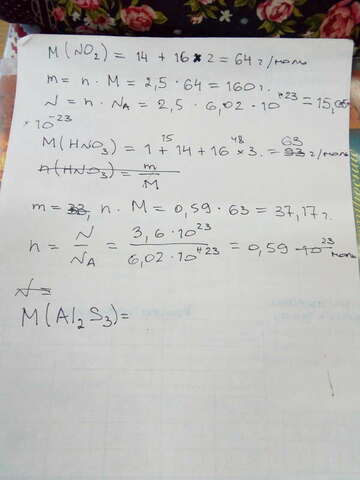 M(NO₂) = 14 + 16 × 2 = 64 г/моль
m = n · M = 2,5 · 64 = 160 г.
N = n · Nₐ = 2,5 · 6,02 · 10⁺²³ = 15,05
× 10⁻²³
15 48 63
M(HNO₃) = 1 + 14 + 16 × 3 = г/моль
n(HNO₃) = m/M
m = n · M = 0,59 · 63 = 37,17 г.
n = N/Nₐ = 3,6 · 10²³/6,02 · 10⁺²³ = 0,59 · 10²³ моль
N =
M(Al₂S₃) =